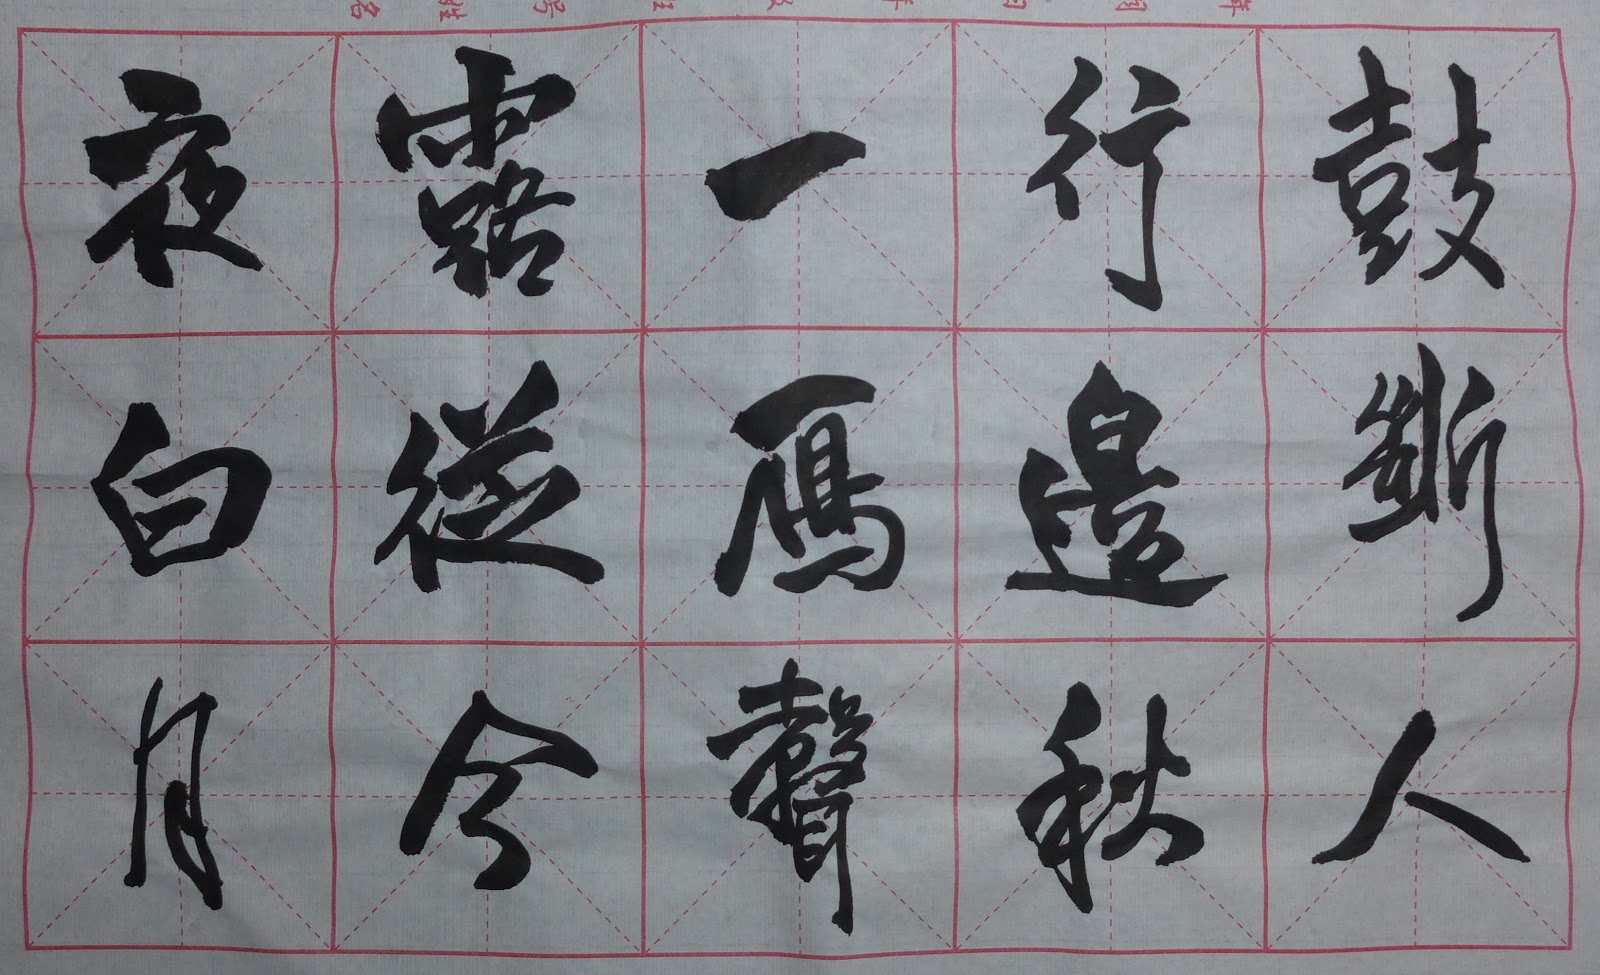 号姓名
鼓斷人
行邊秋
一鴈聲
露從今
夜白月